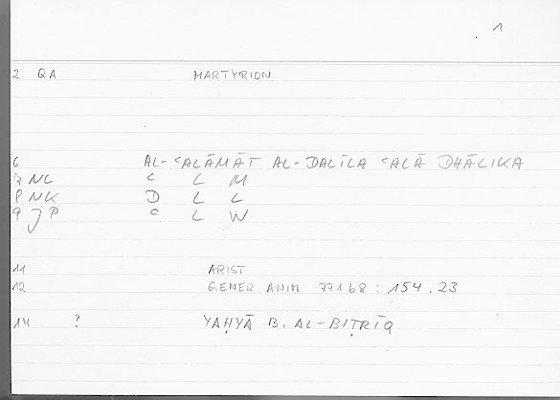 1
2 QA MARTYRION
6 AL-ʿALĀMĀT AL-DALĪLA ʿALĀ DHĀLIKA
7 NL ʿ L M
8 NK D L L
9 JP ʿ L W
11 ARIST
12 GENER ANIM 771b8 : 154.23
14 ? YAḤYĀ B. AL-BIṬRĪQ